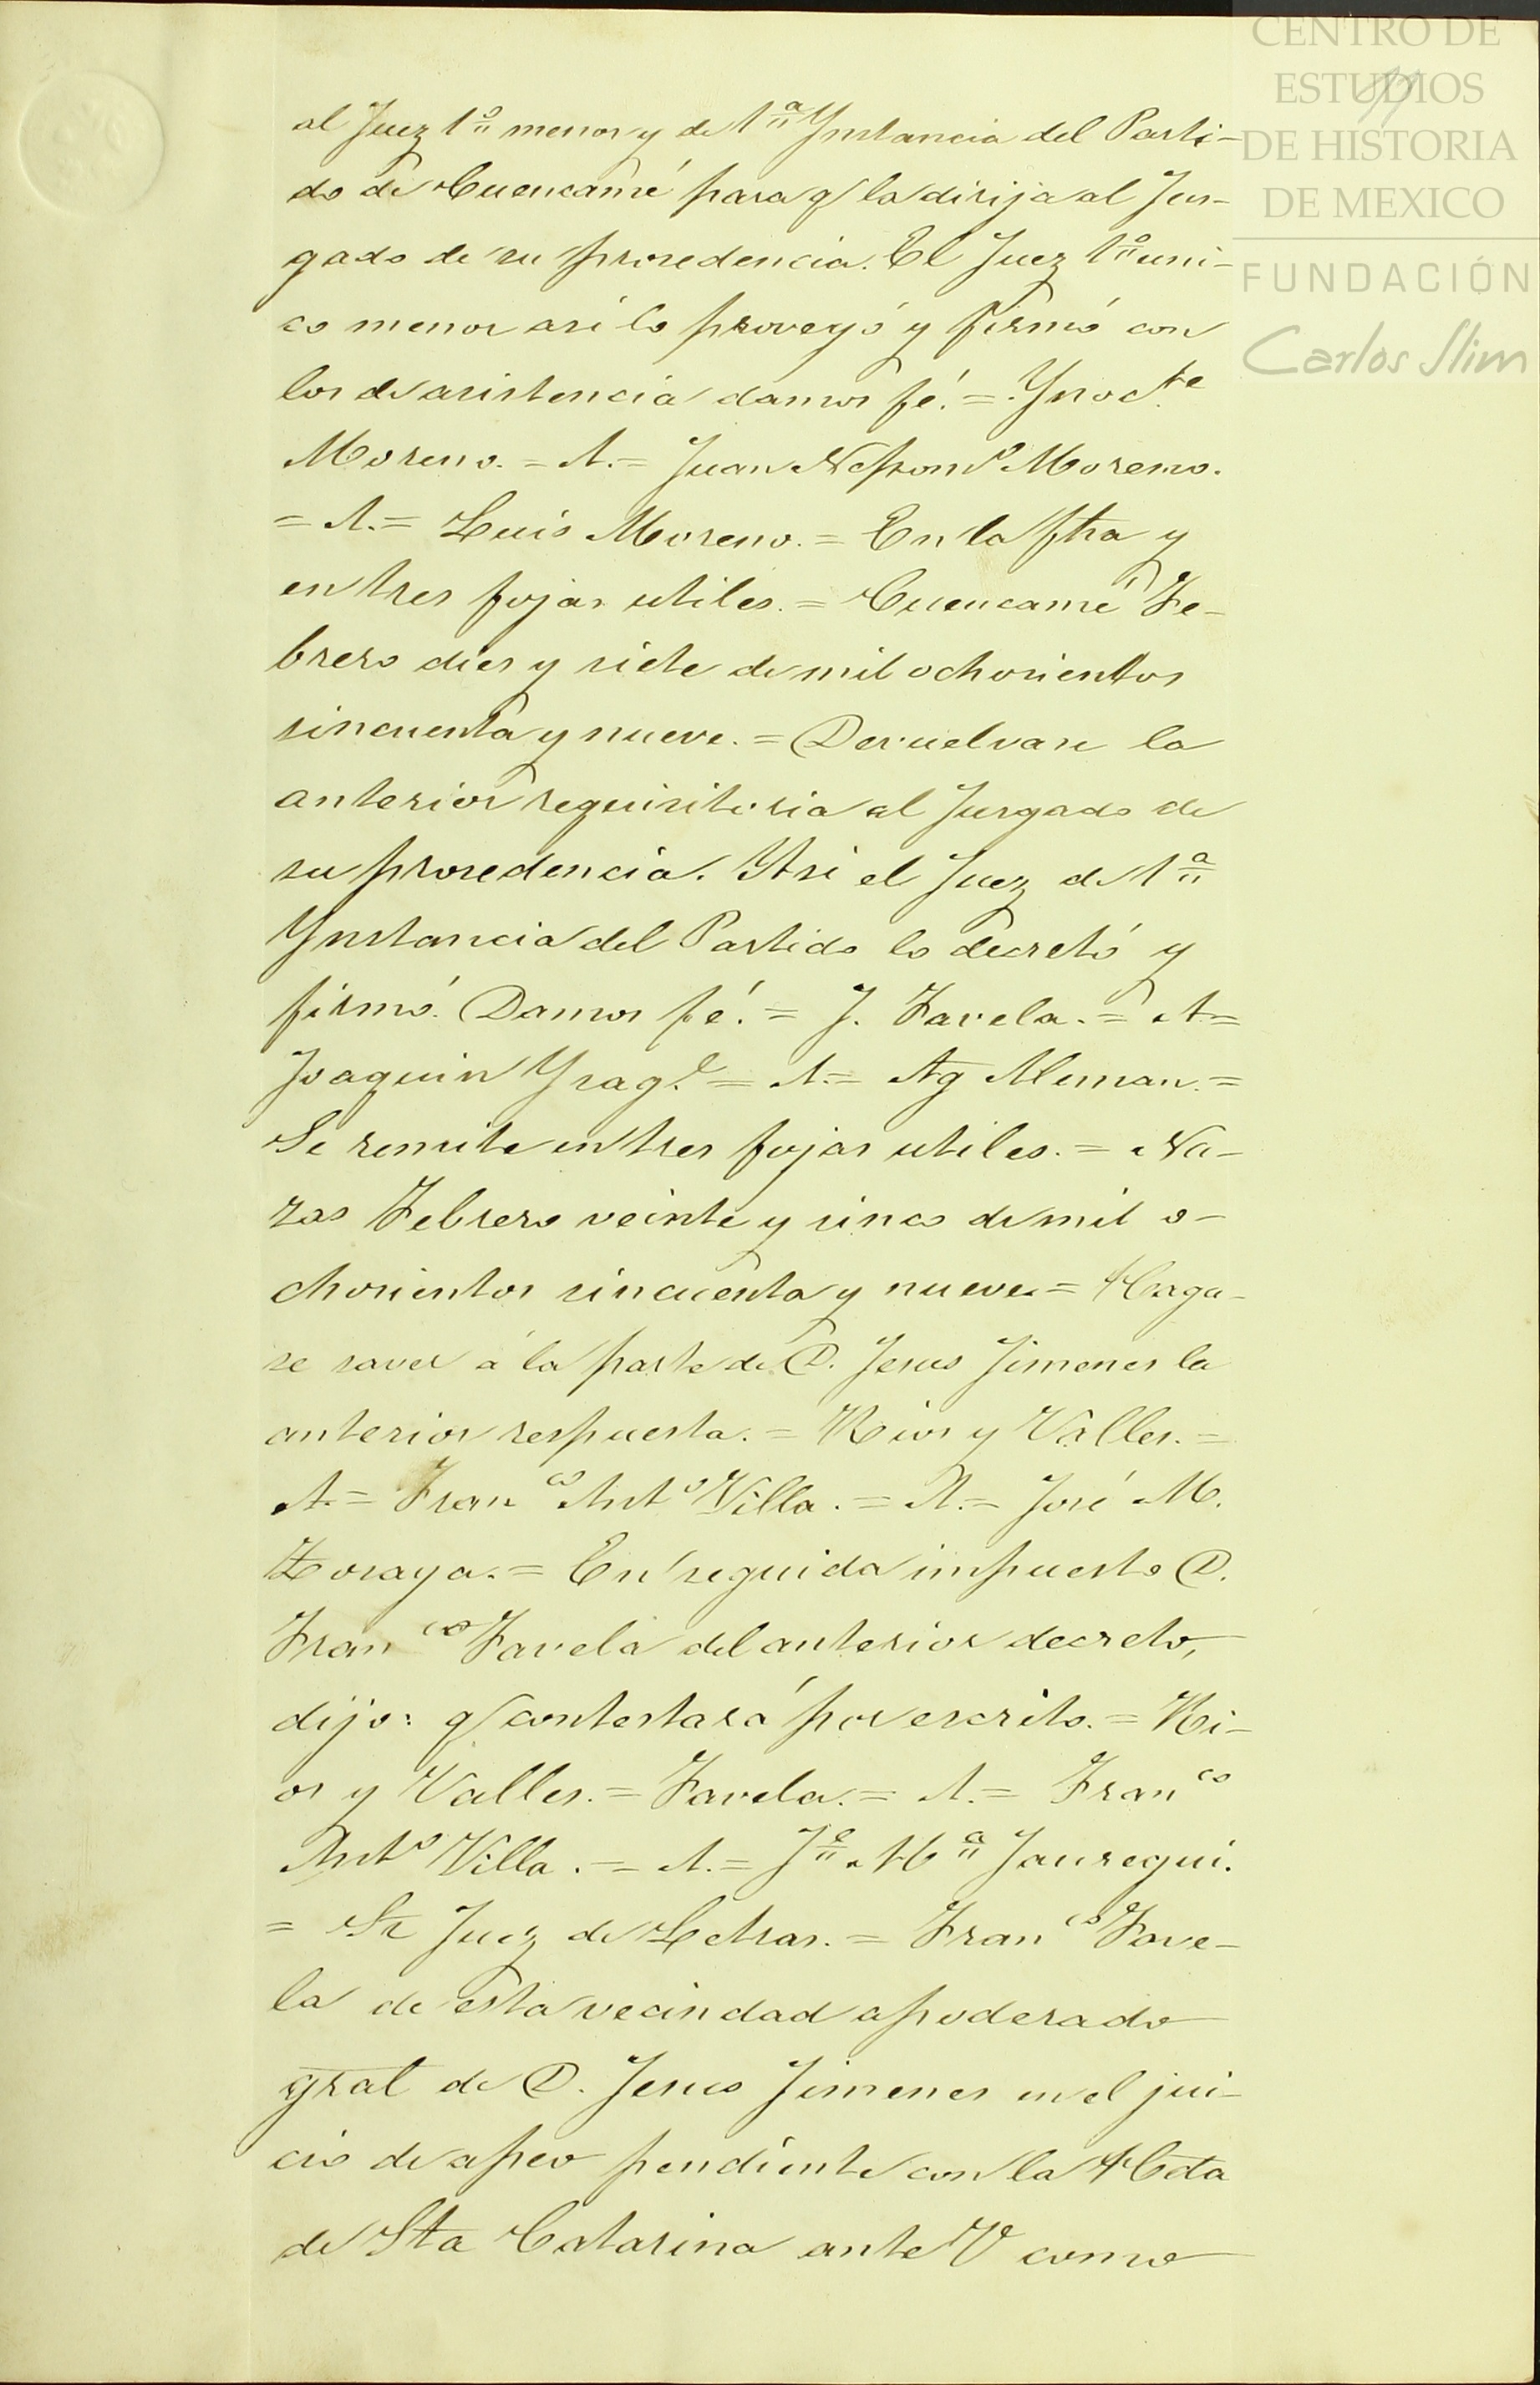 CENTRO DE
ESTUDIOS
DE HISTORIA
DE MEXICO
FUNDACIÓN
Carlos Slim
al Juez 1º menor y de 1ª Ynstancia del Parti-
do de Cuencamé para q/ la dirija al Jus-
gado de su prosedencia. El Juez 1º uni-
co menor asi lo proveyó y firmó con
los de asistencia damos fé. = Ynocte
Moreno. = A. = Juan Nepomo Moreno.
= A. = Luis Moreno. = En la fha y
en tres fojas utiles. = Cuencamé Fe-
brero dies y siete de mil ochosientos
sincuenta y nueve. = Devuelvase la
anterior requisitoria al Jusgado de
su prosedencia. Asi el Juez de 1ª
Ynstancia del Partido lo decretó y
firmó. Damos fé. = J. Favela. = A. =
Joaquin Yrage. = A. = Ag Aleman. =
Se remite en tres fojas utiles. = Na-
zas Febrero veinte y sinco de mil o-
chosientos sincuenta y nueve = Haga-
se saver á la parte de D. Jesus Jimenes la
anterior respuesta. = Rios y Valles. =
A. = Franco Anto Villa. = A. = José M.
Zoraya. = En seguida impuesto D.
Franco Favela del anterior decreto,
dijo: q/ contestará por escrito. = Ri-
os y Valles. = Favela. = A. = Franco
Anto Villa. = A. = Jé Mª Jauregui.
= Sr Juez de Letras. = Franco Fave-
la de esta vecindad apoderado
gral de D. Jesus Jimenes en el jui-
cio de apeo pendiente con la Hda
de Sta Catarina ante V como